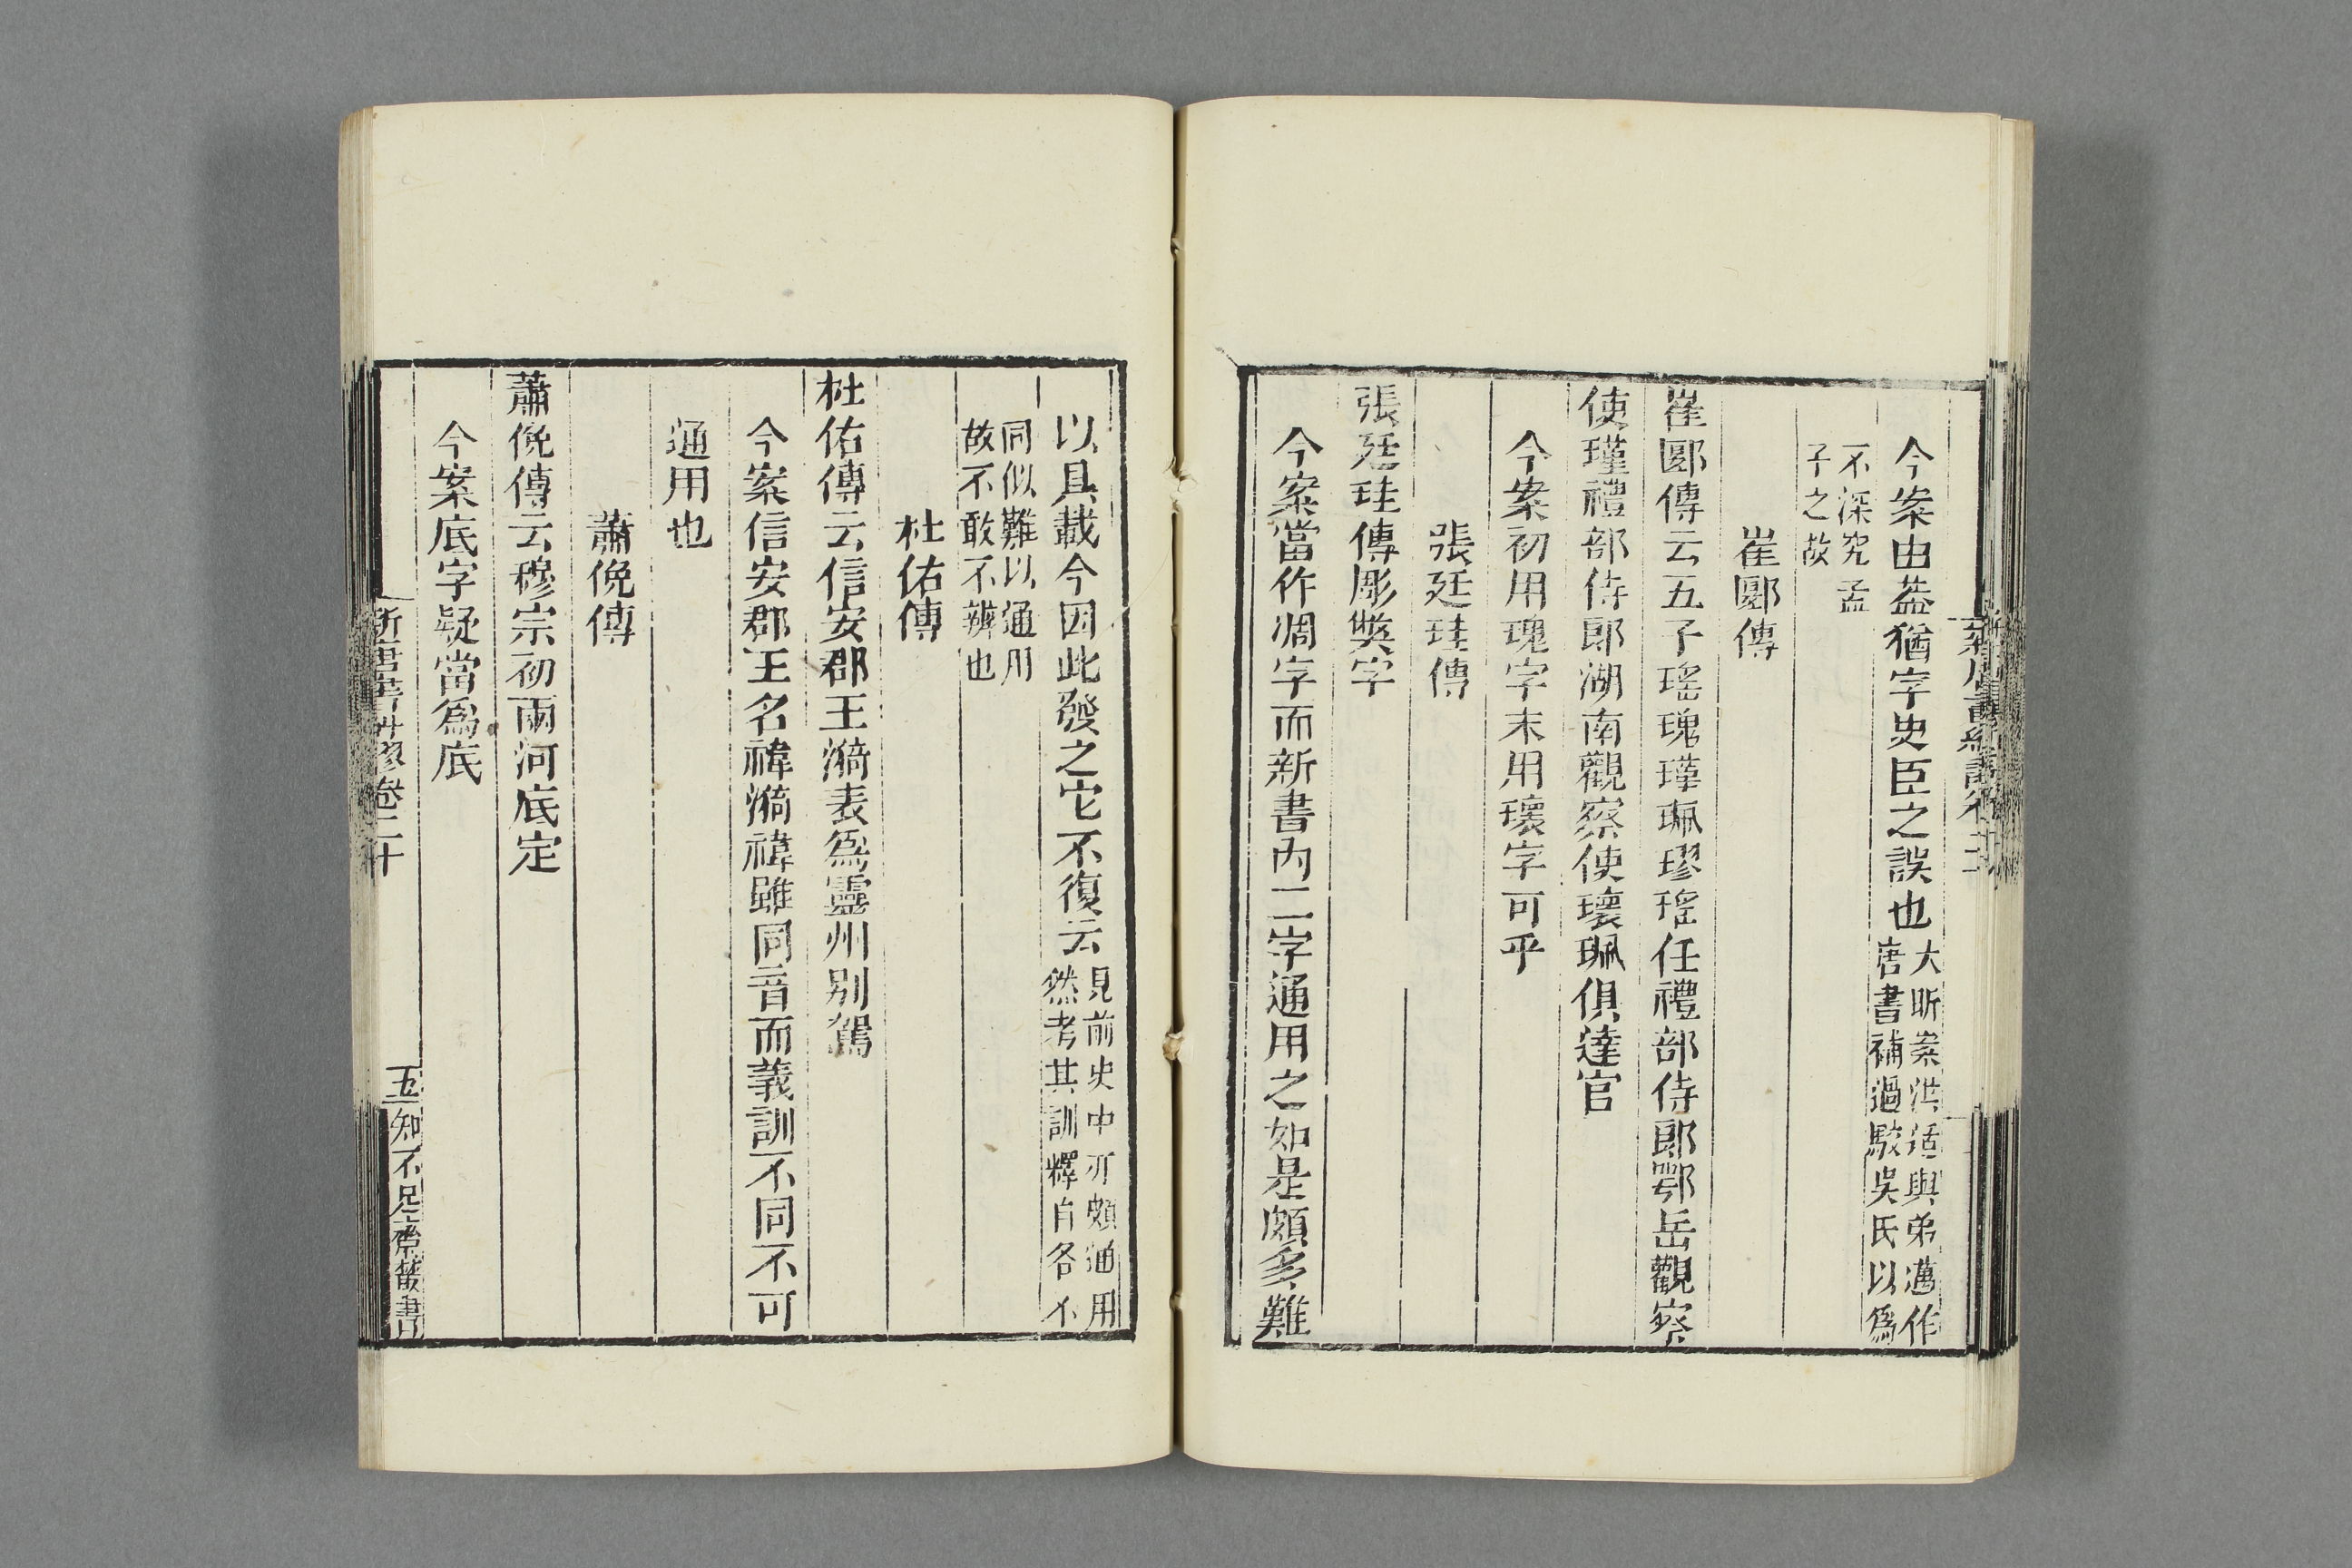 今案由葢猶字史臣之誤也大昕案洪适與弟邁作
唐書補過駮吳氏以爲
不深究孟
子之故
崔郾傳
崔郾傳云五子瑤瑰瑾珮璆瑤任禮部侍郎鄂岳觀察
使瑾禮部侍郎湖南觀察使瓌珮俱達官
今案初用瑰字末用瓌字可乎
張廷珪傳
張廷珪傳彫獘字
今案當作凋字而新書内二字通用之如是頗多難
以具載今因此發之它不復云見前史中亦頗通用
然考其訓釋自各不
同似難以通用
故不敢不辨也
杜佑傳
杜佑傳云信安郡王漪表爲靈州別駕
今案信安郡王名禕漪禕雖同音而義訓不同不可
通用也
蕭俛傳
蕭俛傳云穆宗初兩河底定
今案底字疑當爲底
卷二十
五
知不足齋叢書